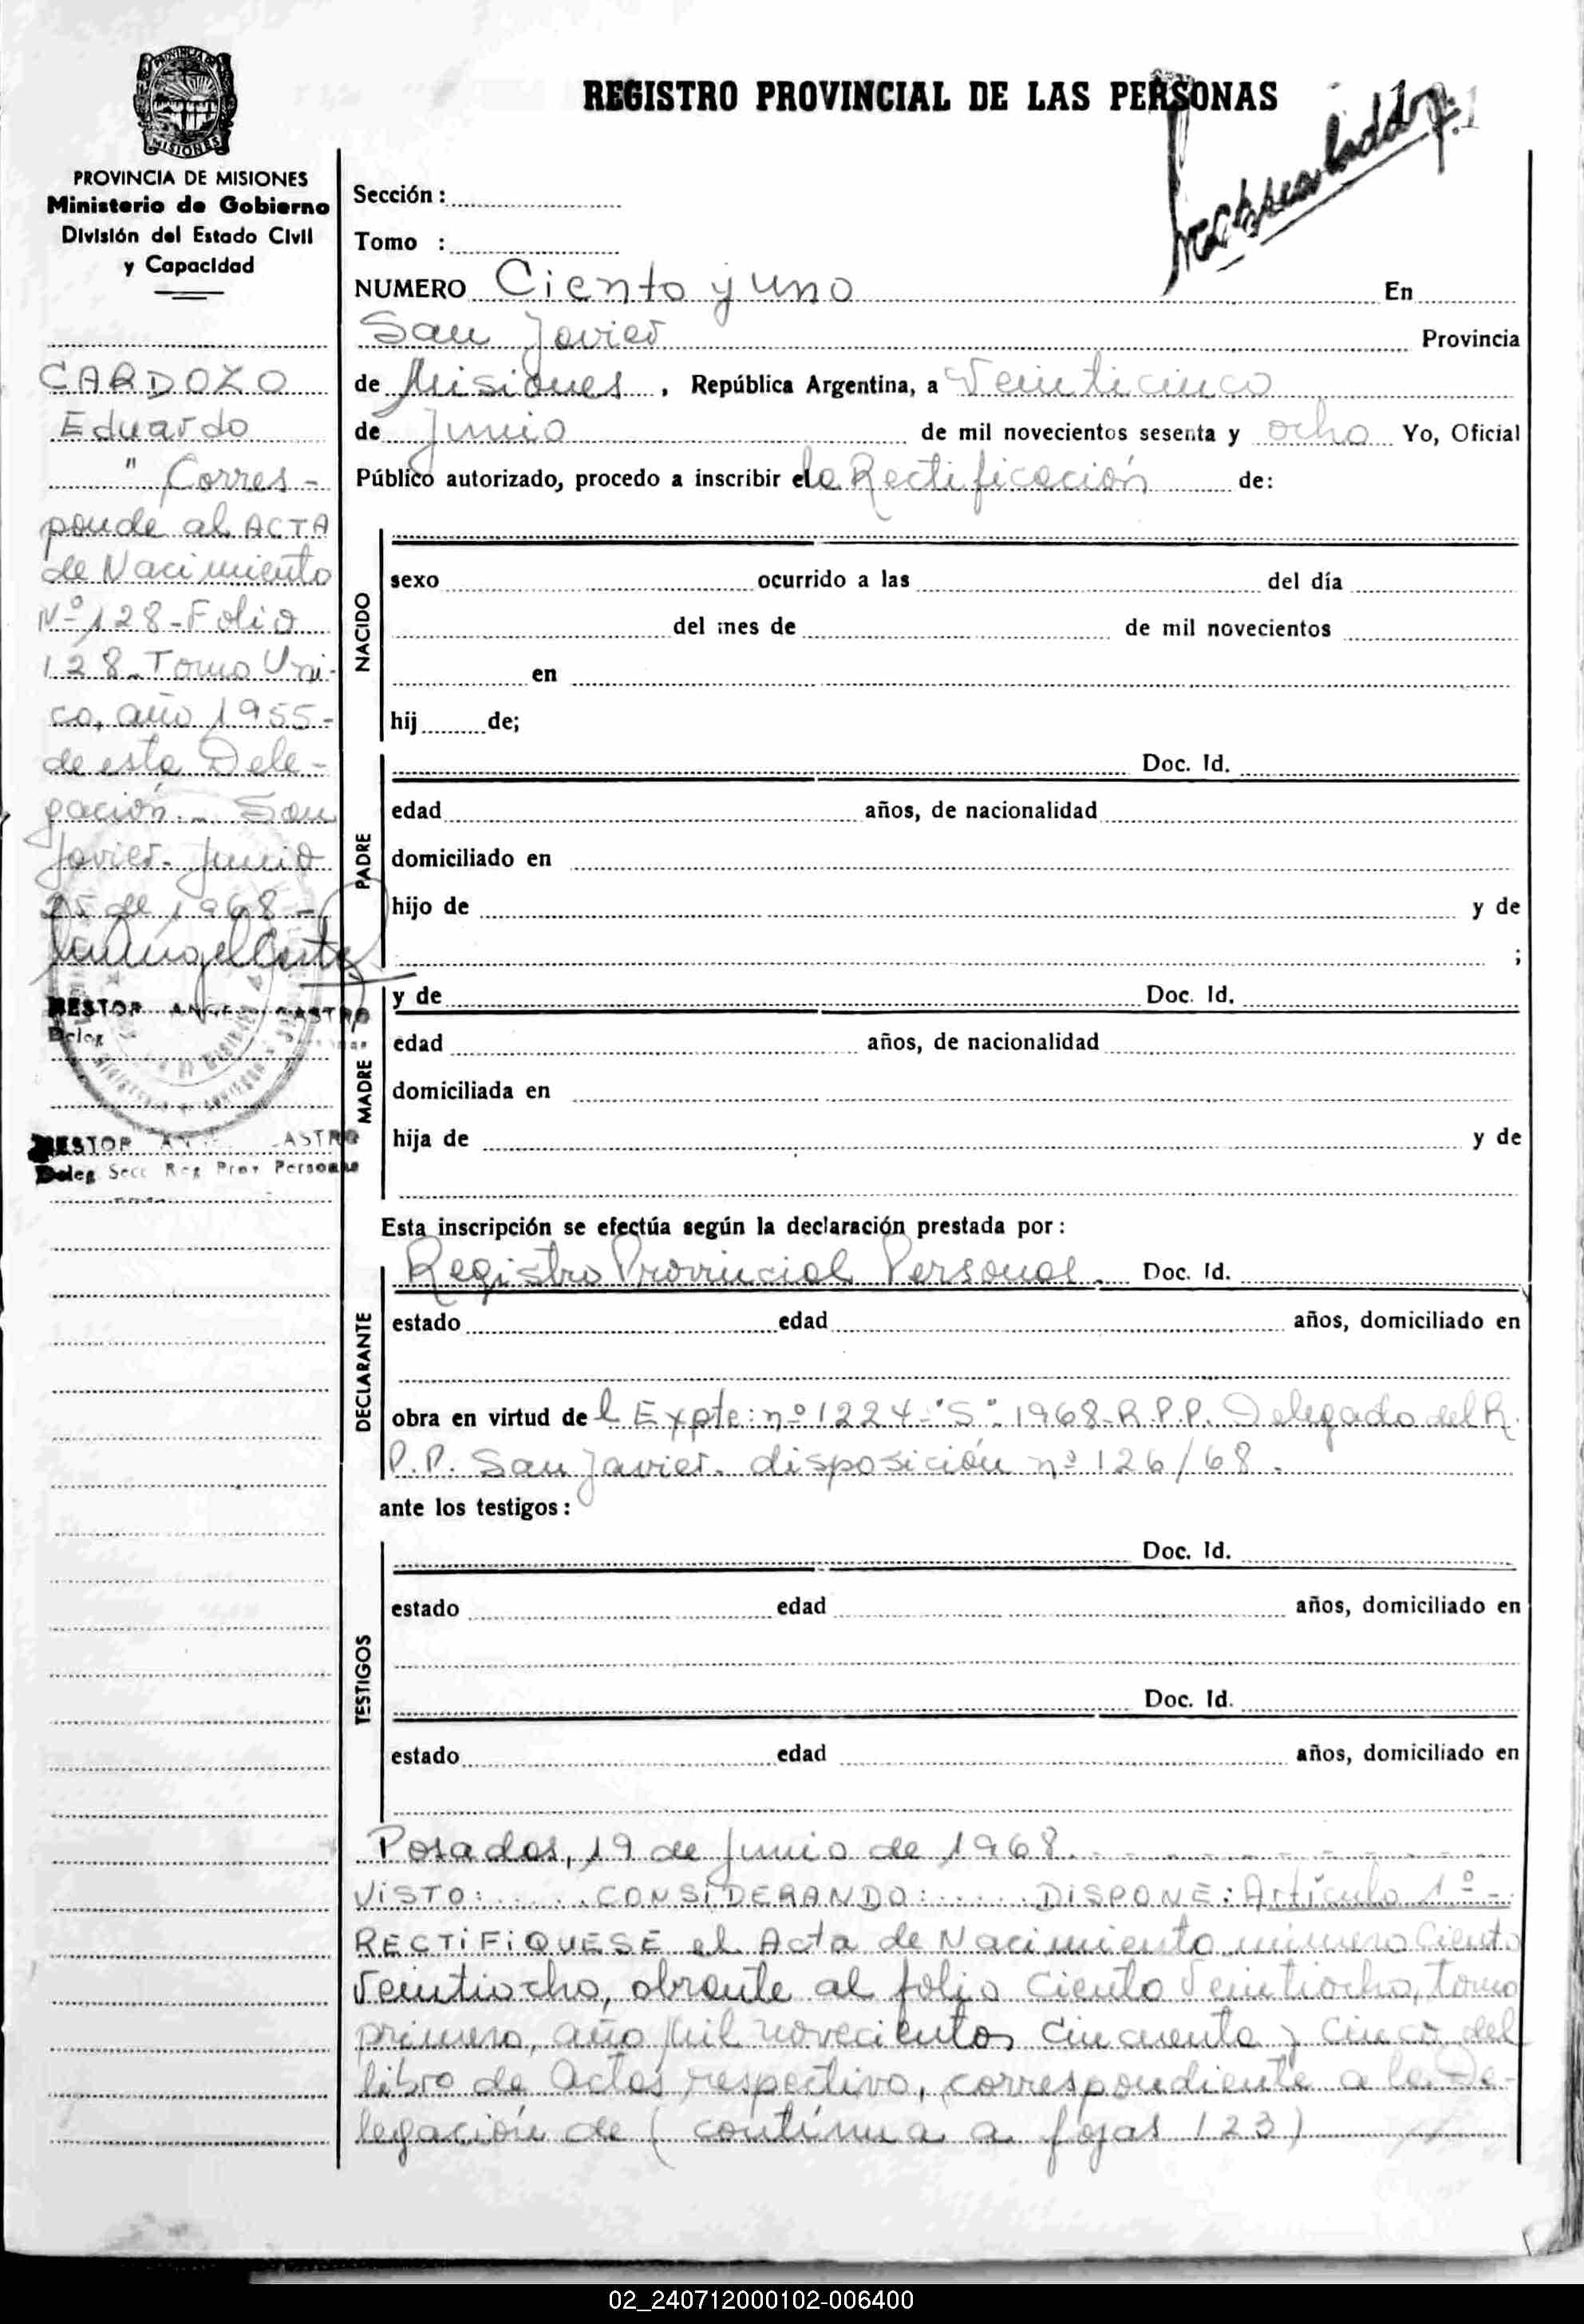 PROVINCIA DE MISIONES
REGISTRO PROVINCIAL DE LAS PERSONAS
PROVINCIA DE MISIONES
Ministerio de Gobierno
División del Estado Civil
y Capacidad
CARDOZO
Eduardo
" Corres-
ponde al ACTA
de Nacimiento
Nº 128-Folio
128. Tomo Uni-
co, año 1955-
de esta Dele-
gación.- San
Javier- Junio
25 de 1968-
NESTOR ANGEL CASTRO
Deleg
NESTOR AN ASTRO
Deleg Secc Reg Prov Personas
Sección:
Tomo :
NUMERO Ciento y uno En
San Javier Provincia
de Misiones, República Argentina, a Veinticinco
de Junio de mil novecientos sesenta y ocho Yo, Oficial
Público autorizado, procedo a inscribir el la Rectificación de:
NACIDO
sexo ocurrido a las del día
del mes de de mil novecientos
en
hij de;
PADRE
Doc. Id.
edad años, de nacionalidad
domiciliado en
hijo de y de
;
MADRE
y de Doc. Id.
edad años, de nacionalidad
domiciliada en
hija de y de
Esta inscripción se efectúa según la declaración prestada por:
DECLARANTE
Registro Provincial Personal. Doc. Id.
estado edad años, domiciliado en
obra en virtud de l Expte: nº 1224-"S" 1968-R.P.P. Delegado del R.
P.P. San Javier. disposición nº 126/68.
ante los testigos:
TESTIGOS
Doc. Id.
estado edad años, domiciliado en
Doc. Id.
estado edad años, domiciliado en
Posadas, 19 de Junio de 1968.
VISTO:......CONSIDERANDO:......DISPONE: Artículo 1º-
RECTIFIQUESE el Acta de Nacimiento número Ciento
Veintiocho, obrante al folio Ciento Veintiocho, tomo
primero, año Mil novecientos cincuenta y cinco del
libro de Actas respectivo, correspondiente a la De-
legación de (continua a fojas 123)
02_240712000102-006400